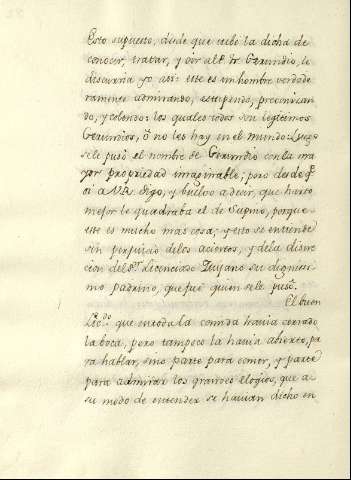 Esto supuesto, desde que tube la dicha de
conocer, tratar, y oir al P.e Fr. Gerundio, le
discurria yo assi: este es un hombre verdade
ramente admirando, estupendo, preconizan
do, y colendo: los quales todos son legitimos
Gerundios, ô no les hay en el mundo: Luego
se le puso el nombre de Gerundio con la ma
yor propriedad imaginable; pero desde q.e
oí a VR digo, y buelvo a decir, que harto
mejor le quadraba el de Supino, porque
este es mucho mas cosa; y esto se entiende
sin perjuicio de los aciertos, y de la discre
cion del S.or Licenciado Quijano su dignissi
mo padrino, que fue quien se le puso.
El buen
Liz.do que en toda la comida havia cerrado
la boca, pero tampoco la havia abierto, pa
ra hablar, sino parte para comer, y parte
para admirar los grandes elogios, que a
su modo de entender se havian dicho en